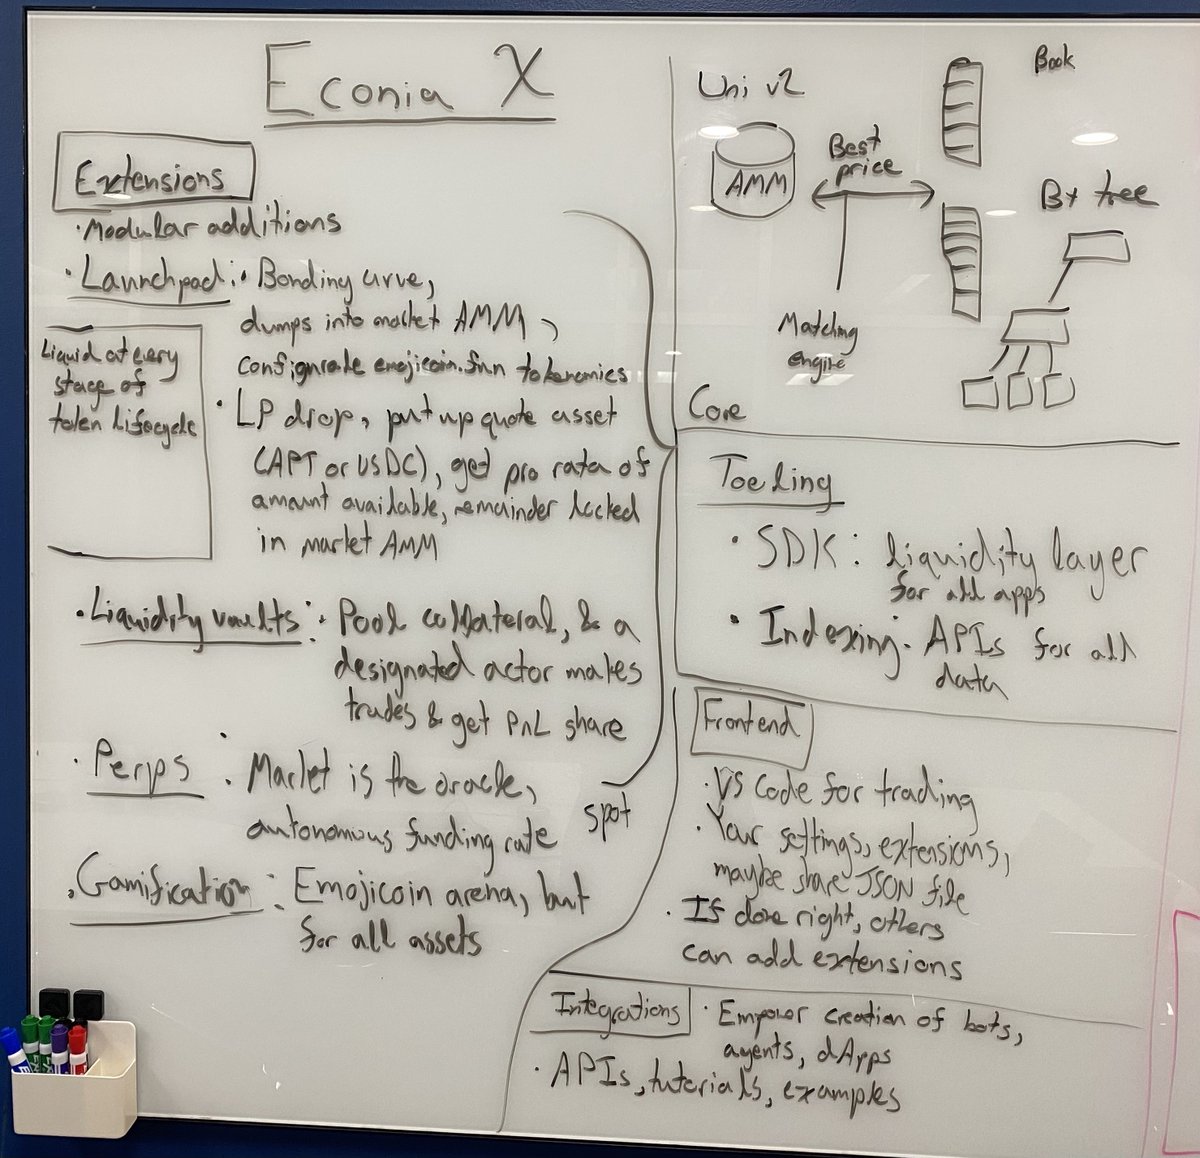 Econia X
Extensions
· Modular additions
· Launchpad: · Bonding curve,
dumps into market AMM,
configurable emojicoin.fun tokenomics
Liquid at every
stage of
token lifecycle
· LP drop, put up quote asset
(APT or USDC), get pro rata of
amount available, remainder locked
in market AMM
· Liquidity vaults: Pool collateral, & a
designated actor makes
trades & get PnL share
· Perps : Market is the oracle,
autonomous funding rate
spot
· Gamification: Emojicoin arena, but
for all assets
Uni v2
AMM
Best
price
Matching
engine
Book
B+ tree
Core
Tooling
· SDK: liquidity layer
for all apps
· Indexing: APIs for all
data
Frontend
· VS Code for trading
· Your settings, extensions,
maybe share JSON file
· If done right, others
can add extensions
Integrations
· Empower creation of bots,
agents, dApps
· APIs, tutorials, examples